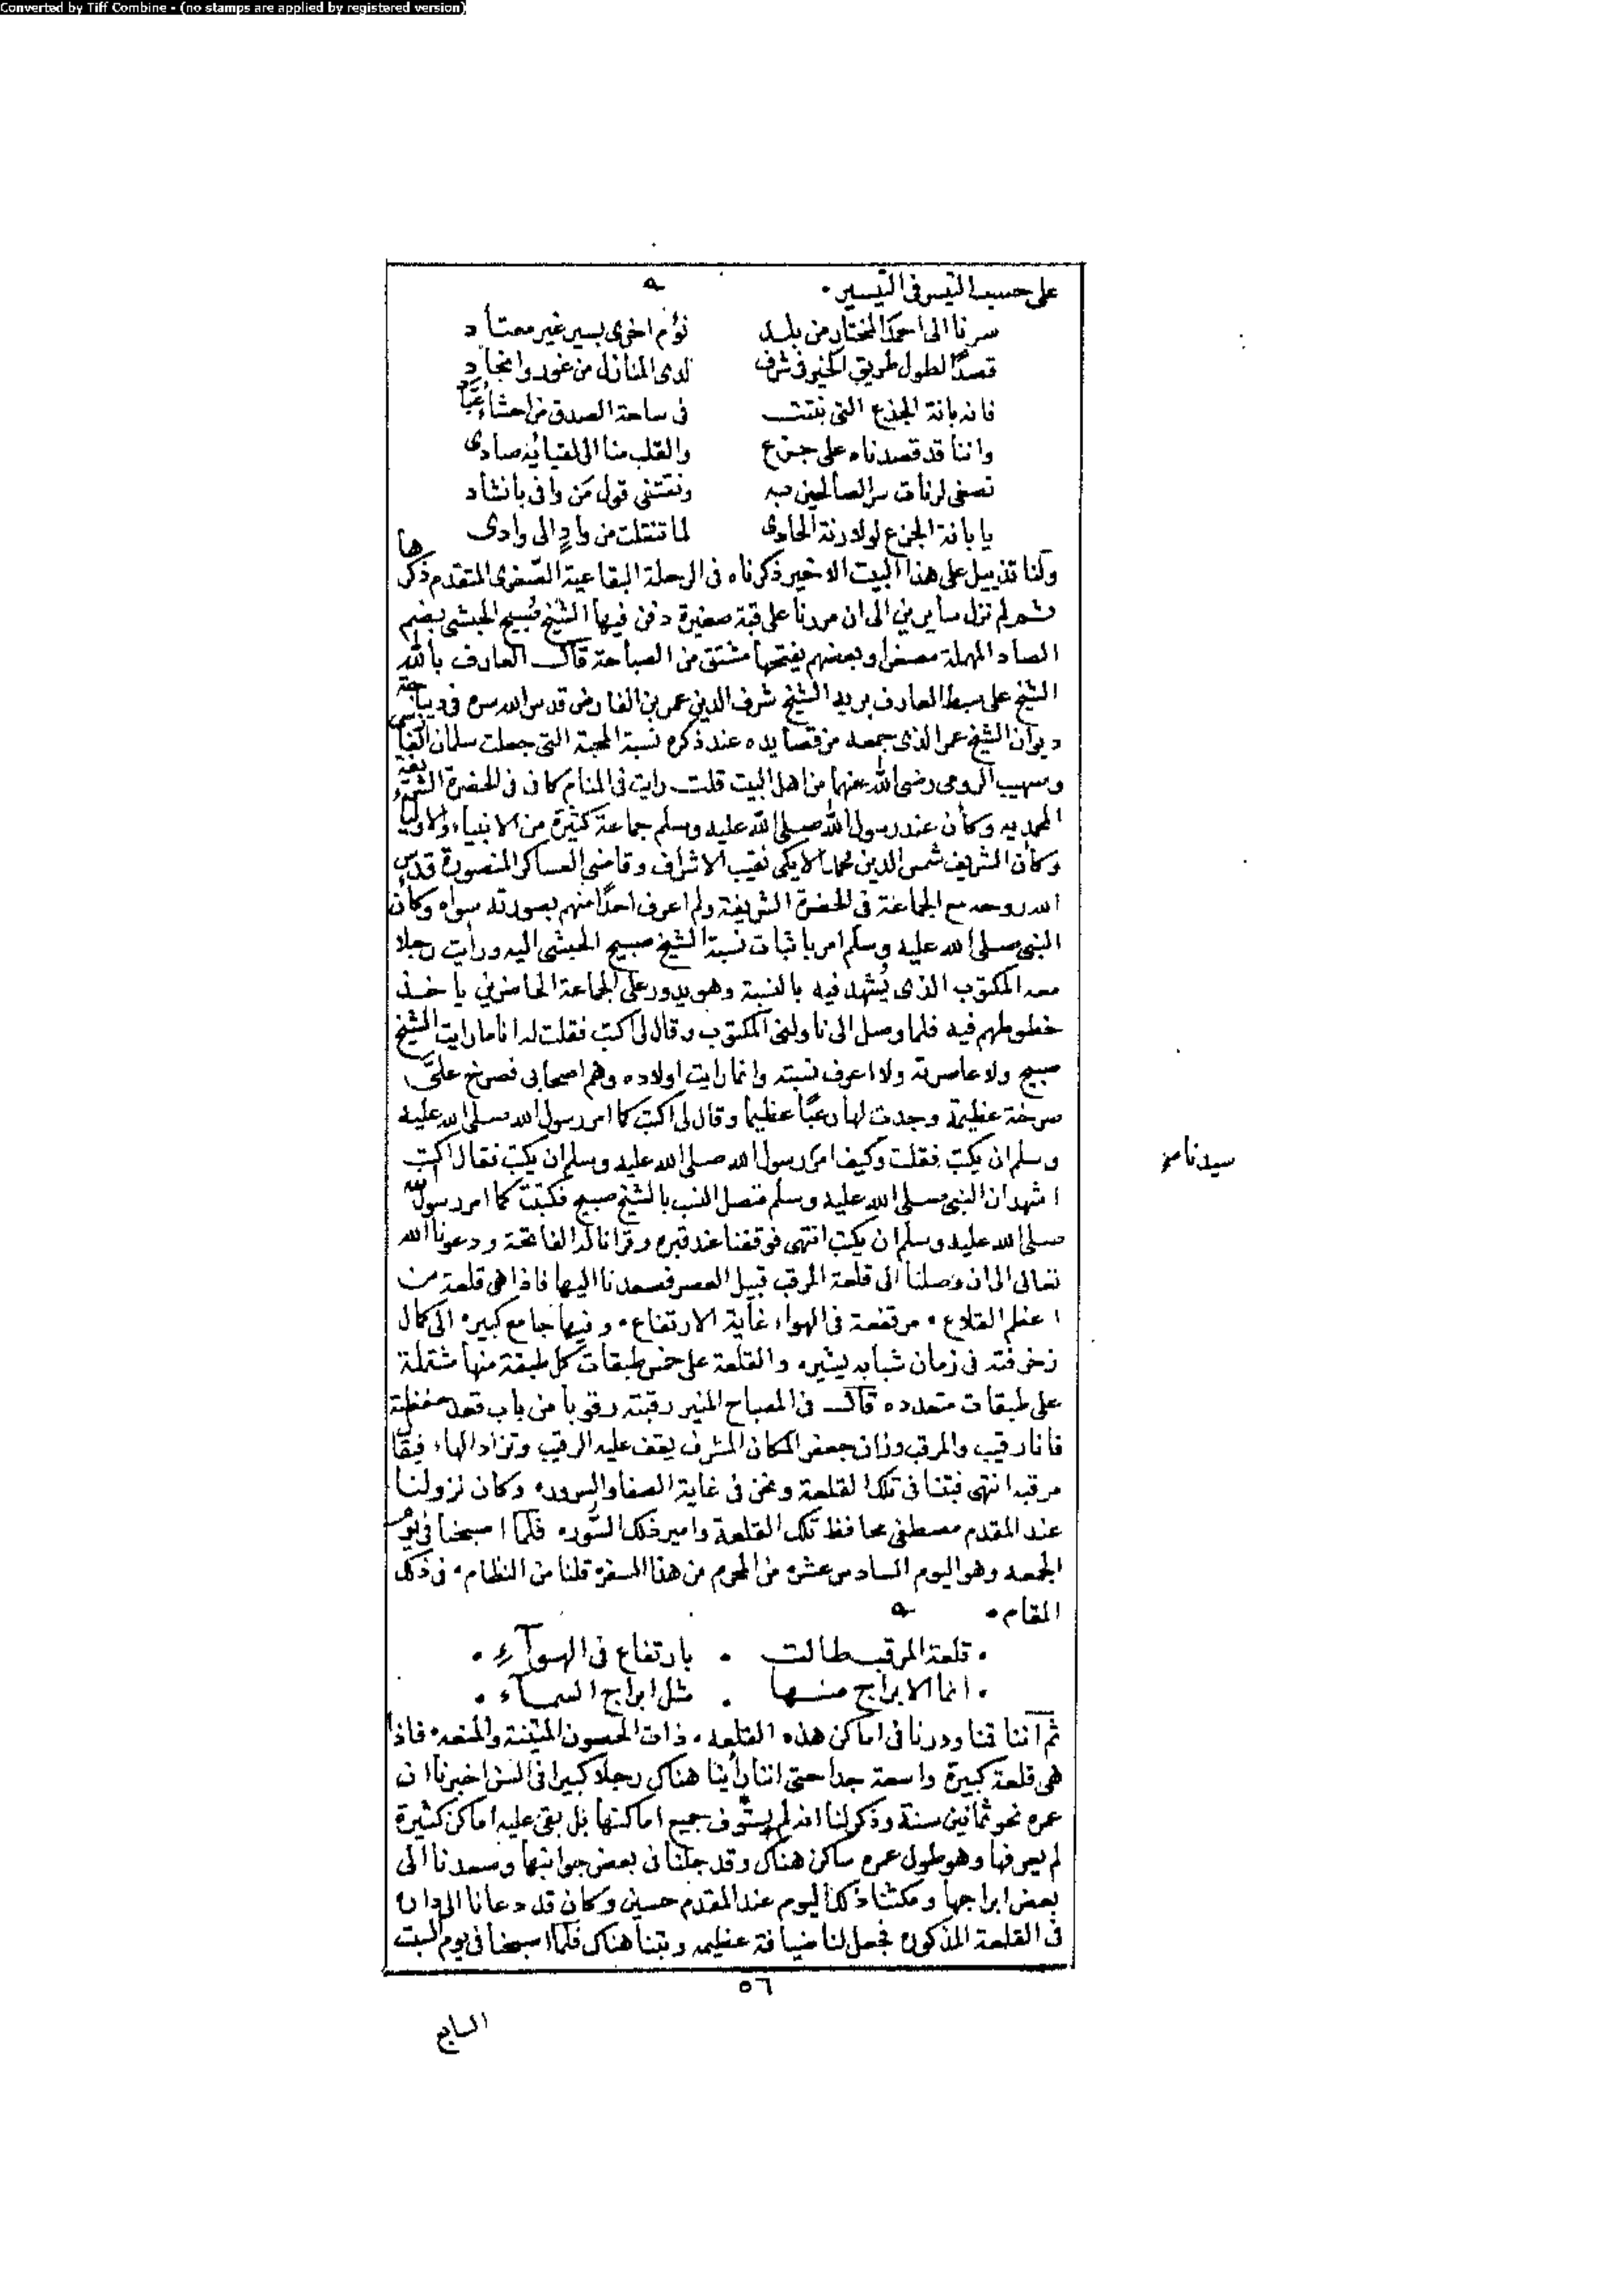 Converted by Tiff Combine - (no stamps are applied by registered version)
على حسب التيسر في التيسير •
سرنا الى احمد المختار من بلد نؤم اخرى بسير غير معتاد
قصدًا لطول طريق الخير في شرف لدى المنازل من غور وانجاد
فانه بانة الجذع التي نبتت في ساحة الصدق من احشاء عبّاد
واننا قد قصدناه على جزع والقلب منا الى لقيائه صادى
نصغى لرنات سر الصالحين به ونقتنى قول من وافى بانشاد
يا بانة الجزع لولا رنة الحادى لما تنقلت من وادٍ الى وادى
ولنا تذييل على هذا البيت الاخير ذكرناه في الرحلة البقاعية الصغرى المتقدم ذكرها
ثم لم نزل سايرين الى ان مررنا على قبة صغيرة دفن فيها الشيخ صُبيح الحبشى بضم
الصاد المهملة مصغرا وبعضهم يفتحها مشتق من الصباحة قال العارف بالله
الشيخ على سبط العارف يريد الشيخ شرف الدين عمر بن الفارض قدس الله سره في ديباجة
ديوان الشيخ عمر الذى جمعه من قصايده عند ذكره نسبة المحبة التى جعلت سلمان الفارسى
وصهيب الرومى رضى الله عنهما من اهل البيت قلت رايت في المنام كانى في الحضرة الشريفة
المحمديه وكأن عند رسول الله صلى الله عليه وسلم جماعة كثيرة من الانبياء والاوليا
وكأن الشريف شمس الدين محمد الايكى نقيب الاشراف وقاضى العساكر المنصورة قدس
الله روحه مع الجماعة في الحضرة الشريفة ولم اعرف احدًا منهم بصورته سواه وكأن
النبى صلى الله عليه وسلم امر باثبات نسبة الشيخ صبيح الحبشى اليه ورأيت رجلا
معه المكتوب الذى يُشهد فيه بالنسبة وهو يدور على الجماعة الحاضرين ياخذ
خطوطهم فيه فلما وصل الى ناولنى المكتوب وقال لى اكتب فقلت له انا ما رايت الشيخ
صبيح ولا عاصرته ولا اعرف نسبته وانما رايت اولاده وهم اصحابى فصرخ علىَّ
صرخة عظيمة وجدت لها رعبًا عظيما وقال لى اكتب كما امر رسول الله صلى الله عليه
وسلم ان يكتب فقلت وكيف امر رسول الله صلى الله عليه وسلم ان يكتب فقال اكتب
سيدنا صح
اشهد ان النبى صلى الله عليه وسلم متصل النسب بالشيخ صبيح فكتبت كما امر رسول الله
صلى الله عليه وسلم ان يكتب انتهى فوقفنا عند قبره وقرانا له الفاتحة ودعونا الله
تعالى الى ان وصلنا الى قلعة المرقب قبيل العصر فصعدنا اليها فاذا هى قلعة من
اعظم القلاع • مرتفعة في الهواء غاية الارتفاع • وفيها جامع كبير • الى كمال
زخرفته في زمان شبابه يشير • والقلعة على خمس طبقات كل طبقة منها مشتملة
على طبقات متعدده قال في المصباح المنير رقبته رقوبا من باب قعد حفظته
فانا رقيب والمرقب وزان جعفر المكان المشرف يقف عليه الرقيب وتزاد الهاء فيقال
مرقبه انتهى فبتنا في تلك القلعة ونحن في غاية الصفا والسرور • وكان نزولنا
عند المقدم مصطفى محافظ تلك القلعة وامير ذلك السّور • فلما اصبحنا في يوم
الجمعه وهو اليوم السادس عشر من المحرم من هذا السفر • قلنا من النظام • في ذلك
المقام •
• قلعة المرقب طالت • بارتفاع في الهوآء •
• انما الابراج منها • مثل ابراج السماء •
ثم اننا قمنا ودرنا في اماكن هذه القلعه • ذات الحصون المتينة والمنعه • فاذا
هى قلعة كبيرة واسعة جدا حتى اننا رأينا هناك رجلا كبيرا في السن اخبرنا ان
عمره نحو ثمانين سنة وذكر لنا انه لم يستوف جميع اماكنها بل بقى عليه اماكن كثيرة
لم يعرفها وهو طول عمره ساكن هناك وقد جلنا في بعض جوانبها وصعدنا الى
بعض ابراجها ومكثنا ذلك اليوم عند المقدم حسين وكان قد دعانا الى داره
في القلعة المذكورة فجعل لنا ضيافة عظيمه وبتنا هناك فلما اصبحنا في يوم السبت
٥٦
السابع